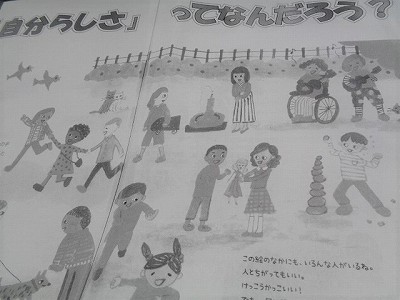 「自分らしさ」ってなんだろう？
この絵のなかにも、いろんな人がいるね。
人とちがってもいい。
けっこうかっこいい！